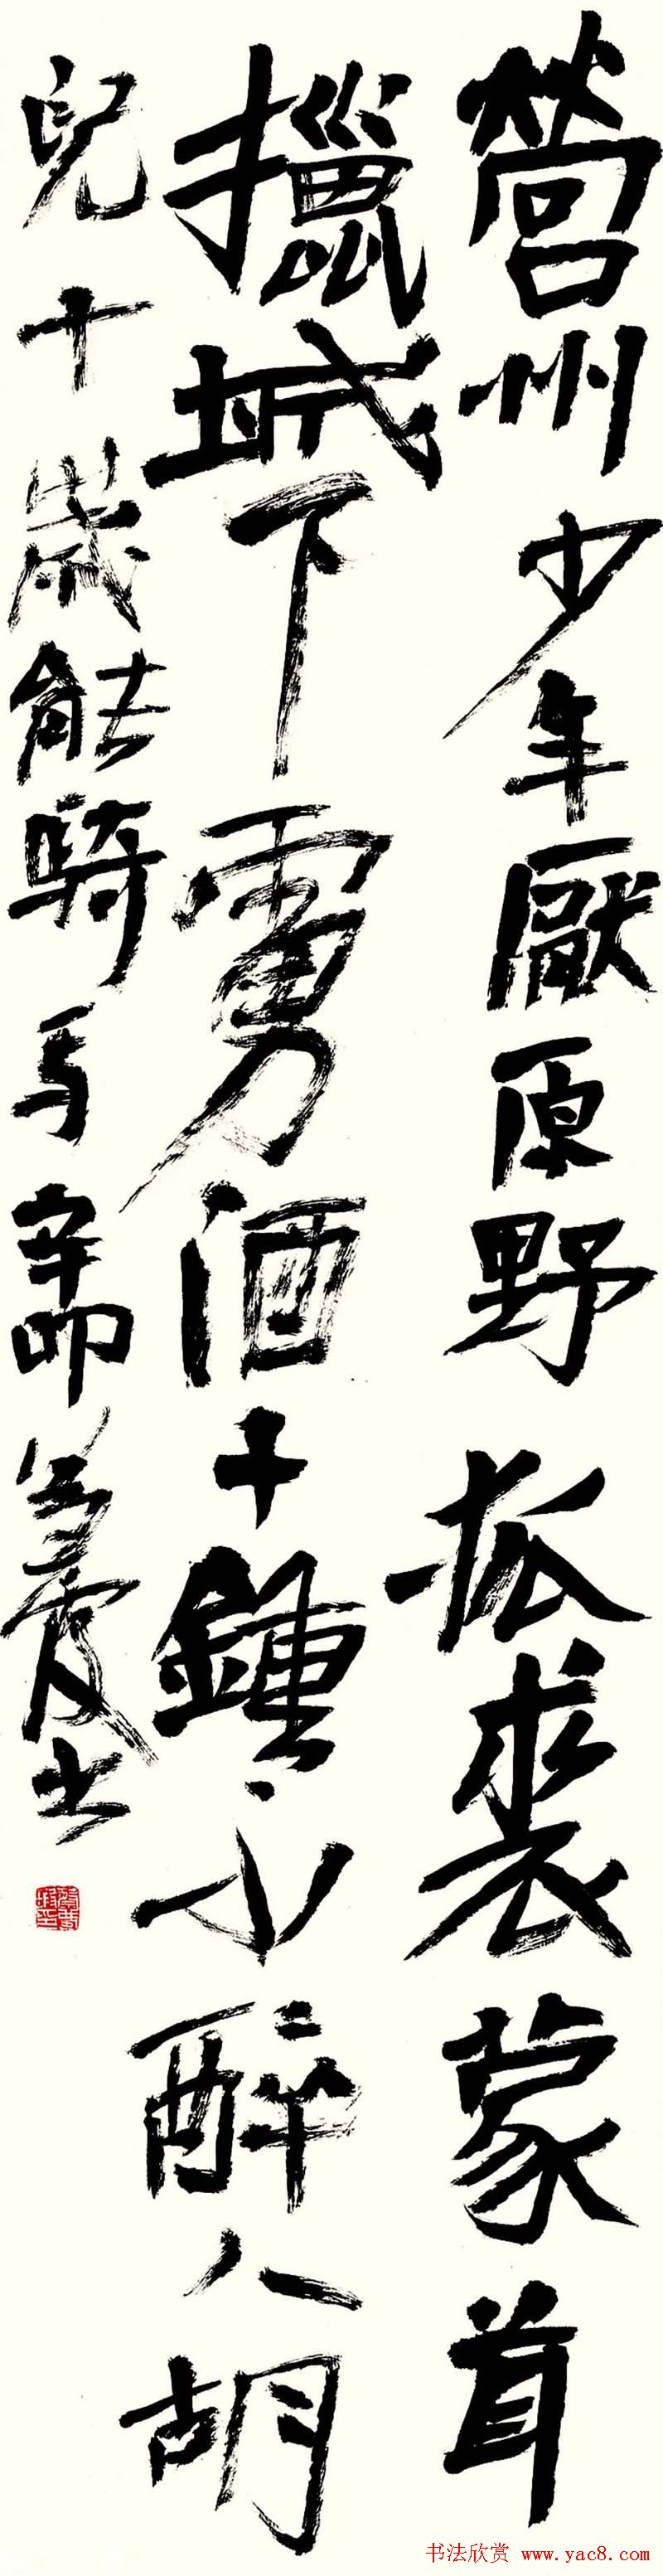 營州少年厭原野狐裘蒙茸
獵城下虜酒十鍾不醉人胡
兒十歲能騎馬辛卯
书法欣赏 www.yac8.com